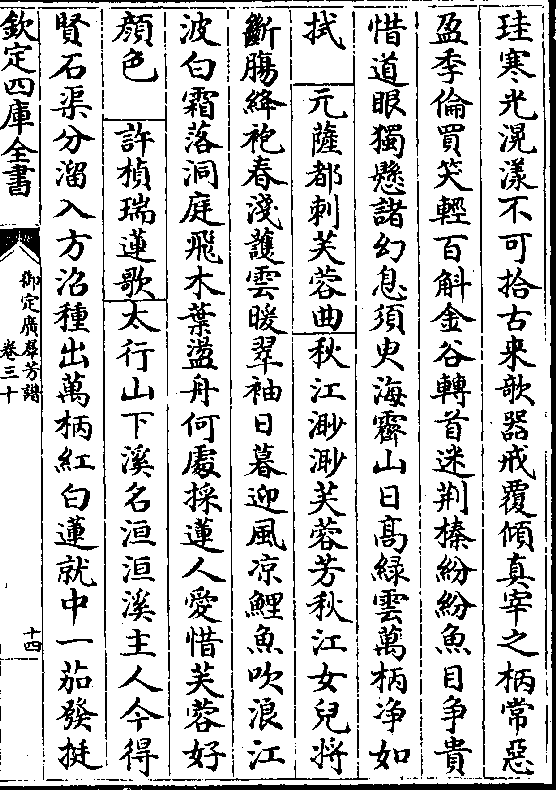 珪寒光滉漾不可拾古来欹器戒覆傾真宰之柄常惡
盈季倫買笑輕百斛金谷轉首迷荆榛紛紛魚目争貴
惜道眼獨懸諸幻息須臾海霽山日高緑雲萬柄净如
拭　元薩都刺芙蓉曲秋江渺渺芙蓉芳秋江女兒將
斷腸絳袍春淺護雲暖翠袖日暮迎風凉鯉魚吹浪江
波白霜落洞庭飛木葉盪舟何處採蓮人愛惜芙蓉好
顔色　許楨瑞蓮歌太行山下溪名洹洹溪主人今得
賢石渠分溜入方沼種出萬柄紅白蓮就中一茄發挺
欽定四庫全書
御定廣羣芳譜
卷三十
十四